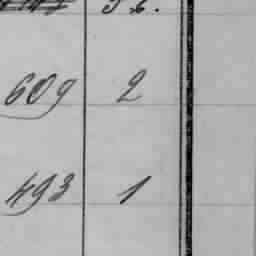 609 2
493 1